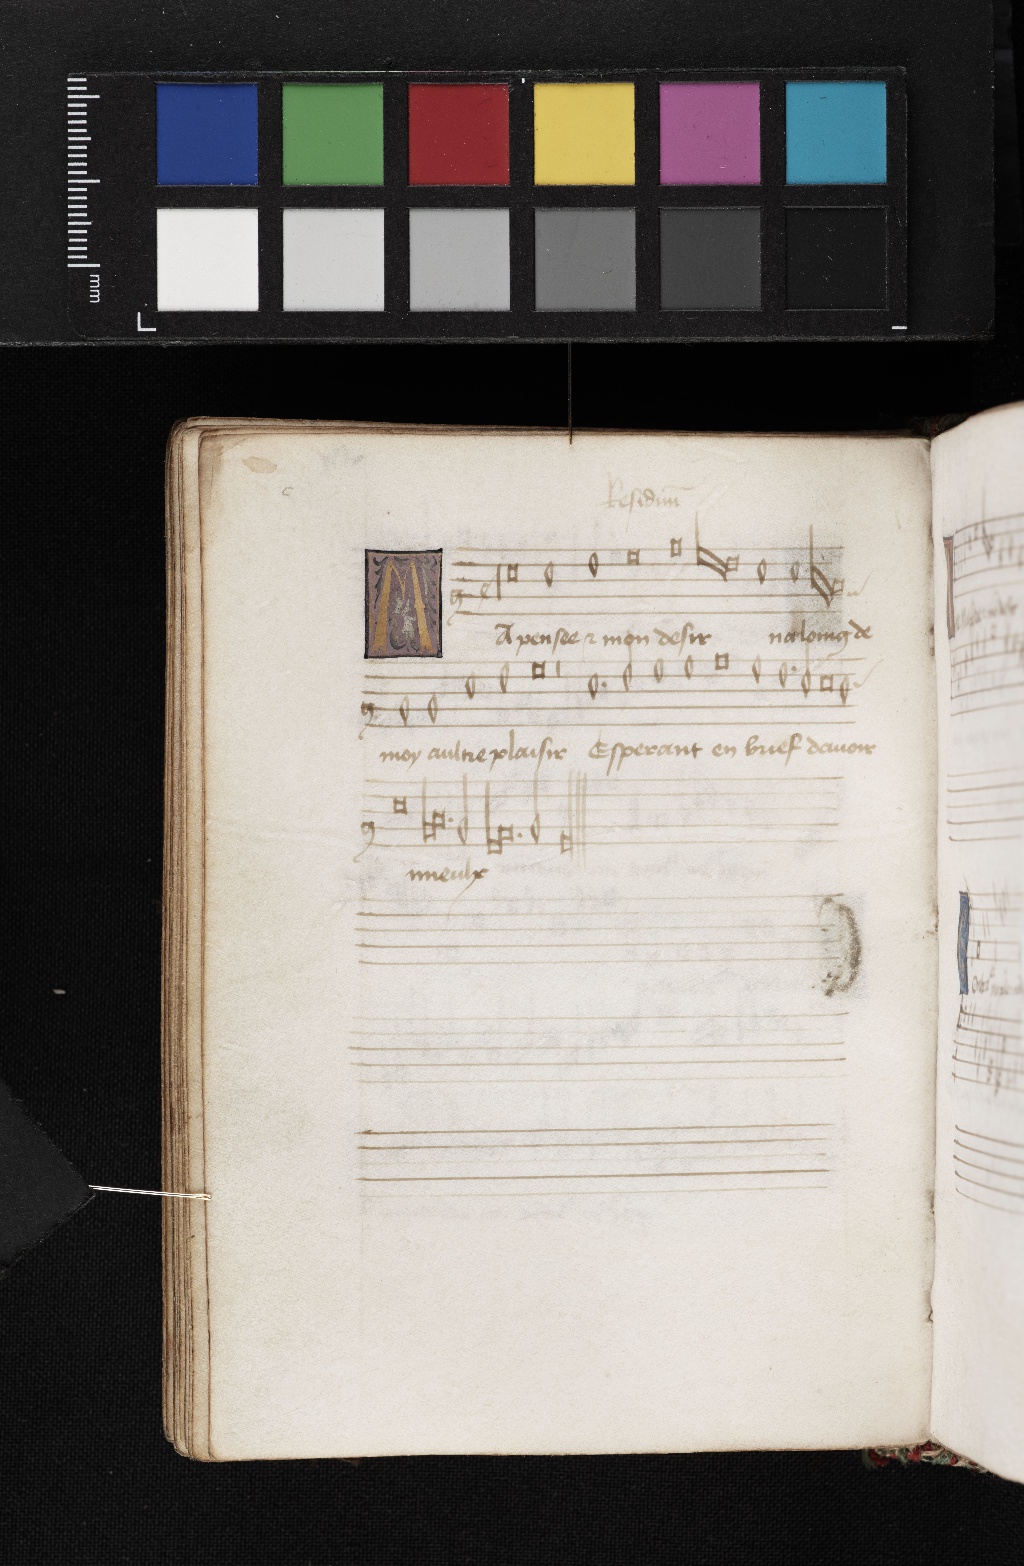 mm
c
Residuum
MA pensee & mon desir na loing de
moy aultre plaisir Esperant en brief davoir
mieulx